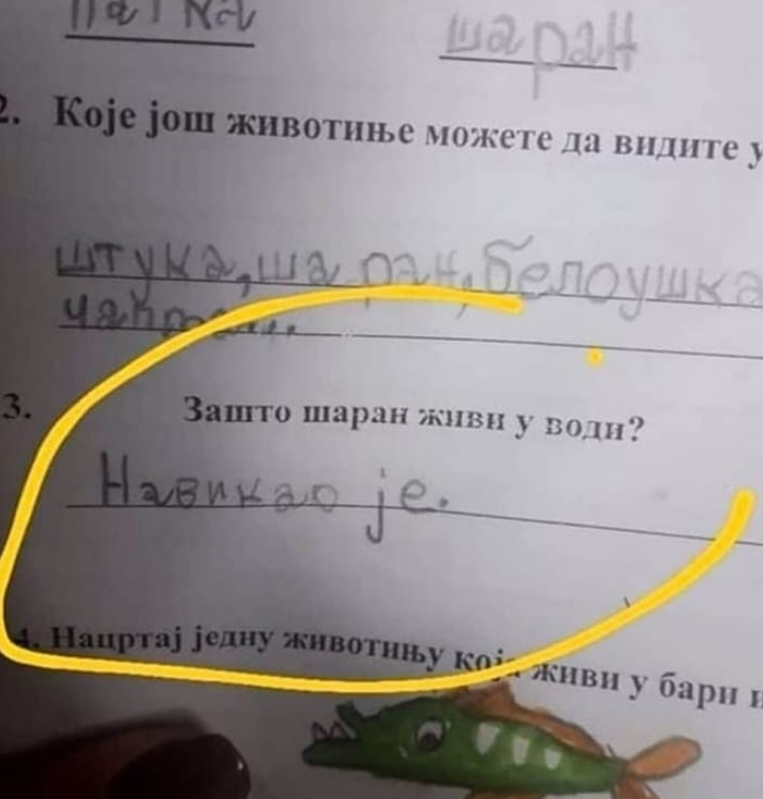 шаран
2. Које још животиње можете да видите у
штука, шаран, белоушка
3. Зашто шаран живи у води?
Навикао је.
4. Нацртај једну животињу која живи у бари и